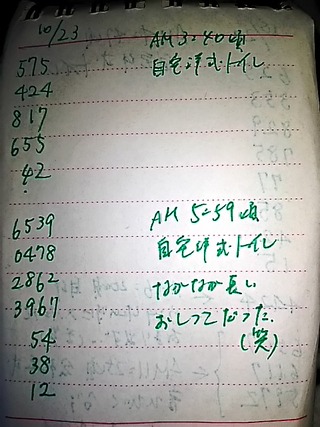 10/23
AM 3:40頃
575 自宅洋式トイレ
424
817
655
42
AM 5:59頃
6539
0478 自宅洋式トイレ
2862 なかなか長い
3967 おしっこだった
54 (笑)
38
12